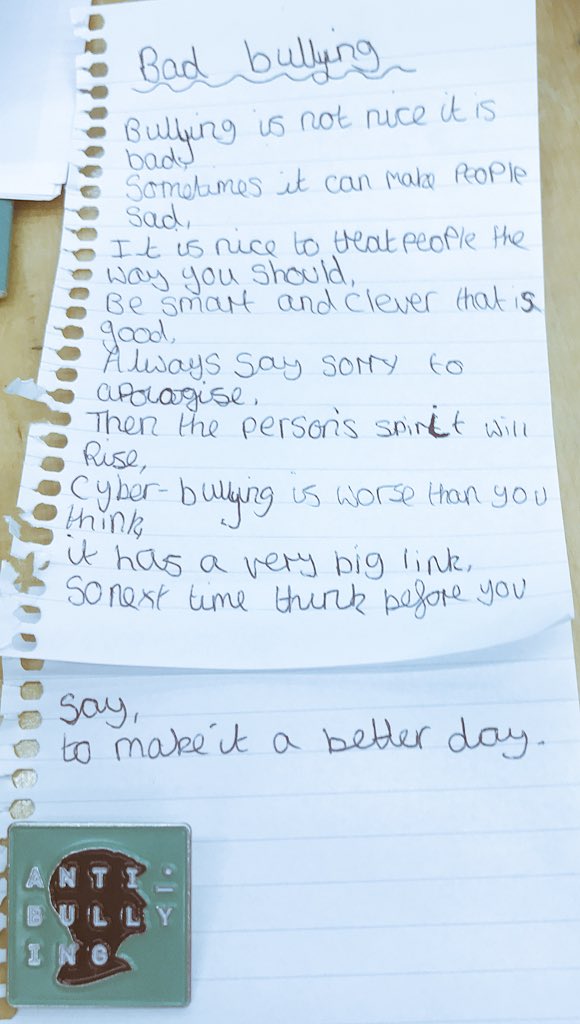 Bad bullying
Bullying is not nice it is
bad,
Sometimes it can make people
sad,
It is nice to treat people the
way you should,
Be smart and clever that is
good,
Always say sorry to
apologise.
Then the person's spirit will
Rise,
Cyber-bullying is worse than you
think,
it has a very big link,
So next time think before you
say,
to make it a better day.
ANTI-
BULLY
ING